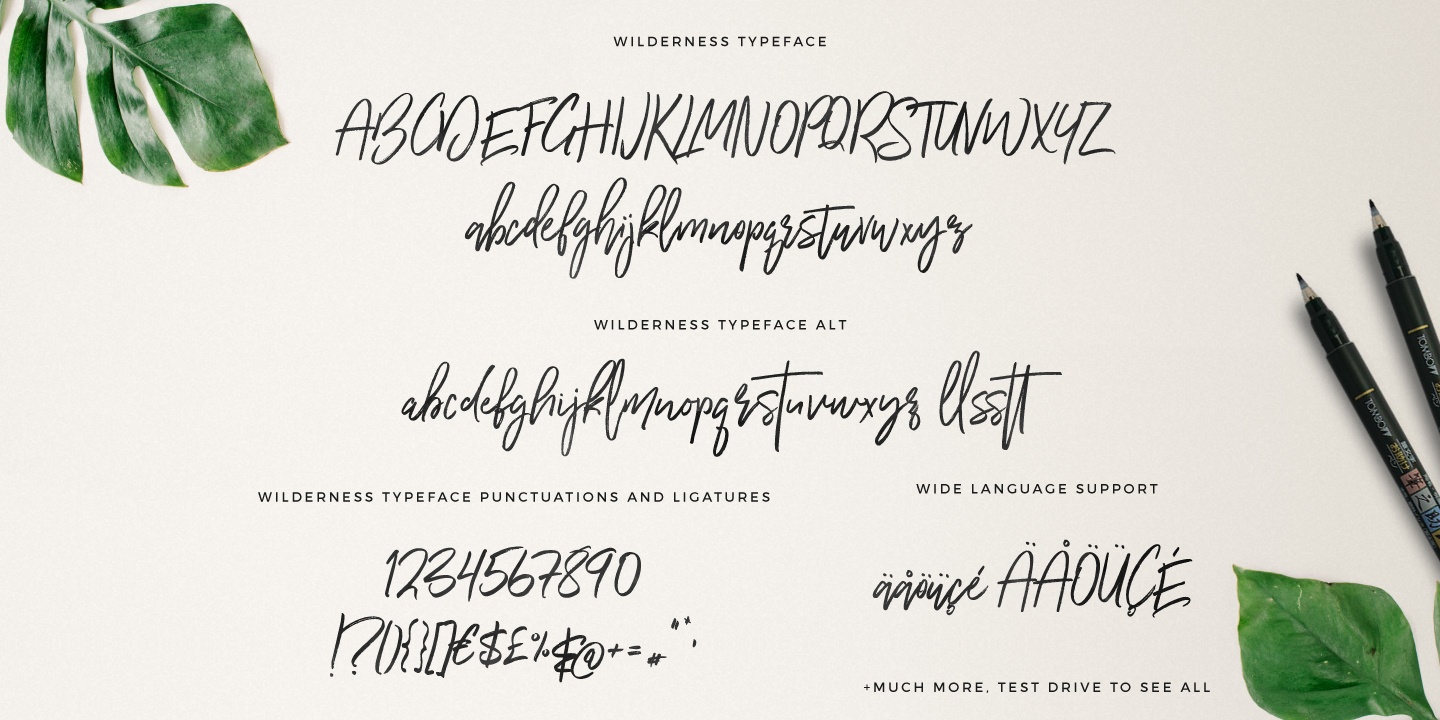 WILDERNESS TYPEFACE
ABCDEFGHIJKLMNOPQRSTUVWXYZ
abcdefghijklmnopqrstuvwxyz
WILDERNESS TYPEFACE ALT
abcdefghijklmnopqrstuvwxyz llsstt
WILDERNESS TYPEFACE PUNCTUATIONS AND LIGATURES
1234567890
!?(){}[]€$£%
@+=#"*'
WIDE LANGUAGE SUPPORT
äåöüçé ÄÅÖÜÇÉ
+MUCH MORE, TEST DRIVE TO SEE ALL
TOMBOW
TOMBOW